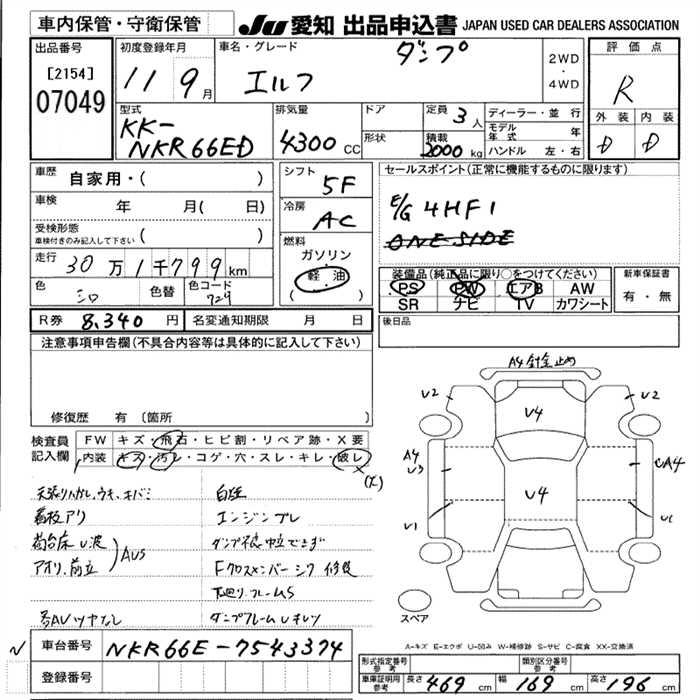 車内保管・守衛保管
JU 愛知 出品申込書 JAPAN USED CAR DEALERS ASSOCIATION
出品番号
[2154]
07049
初度登録年月
11 9月
車名・グレード
エルフ
ダンプ
2WD
・
4WD
評価点
R
外装 内装
D D
型式
KK-
NKR66ED
排気量
4300 CC
ドア
形状
定員 3人
積載 2000 kg
ディーラー・並行
モデル年式 年
ハンドル 左・右
車歴
自家用・( )
車検 年 月( 日)
受検形態
車検付きのみ記入して下さい ( )
走行 30万1千799km
色 シロ 色替 色コード 729
シフト 5F
冷房 AC
燃料
ガソリン
軽・油
( )
セールスポイント(正常に機能するものに限ります)
E/G 4HF1
ONE SIDE
装備品(純正品に限り○をつけてください)
PS PW エアB AW
SR ナビ TV カワシート
新車保証書
有・無
R券 8,340円 名変通知期限 月 日
後日品
注意事項申告欄(不具合内容等は具体的に記入して下さい)
修復歴 有(箇所
検査員
記入欄
FW キズ・飛石・ヒビ割・リペア跡・X要
内装 キズ・汚レ・コゲ・穴・スレ・キレ・破レ
看板アリ
荷台床U波
アオリ、前立
AUS
エンジンブレ
Fクロスメンバーシワ修復
下廻リ、フレームS
ダンプフレームUキレツ
A4
U2
U4
U2
A4
U3
CA4
U4
U1
U1
スペア
A-キズ E-エクボ U-凹み W-補修跡 S-サビ C-腐食 XX-交換済
車台番号 NKR66E-7543374
登録番号
型式指定番号
参考
類別区分番号
参考
車庫証明用
参考
長さ 469cm 幅 169cm 高さ 196cm